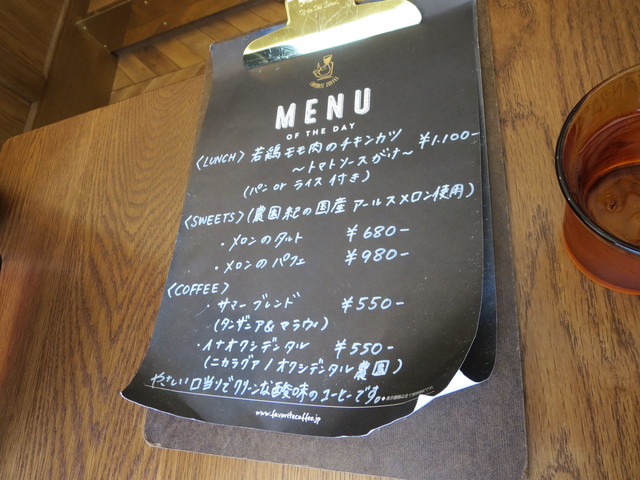 FAVORITE COFFEE
MENU
OF THE DAY
〈LUNCH〉 若鶏モモ肉のチキンカツ ¥1.100-
〜トマトソースがけ〜
(パン or ライス付き)
〈SWEETS〉(農園紀の国産 アールスメロン使用)
・メロンのタルト ¥680-
・メロンのパフェ ¥980-
〈COFFEE〉
・サマーブレンド ¥550-
(タンザニア&マラウィ)
・イナオクシデンタル ¥550-
(ニカラグア/オクシデンタル農園)
やさしい口当りでクリーンな酸味のコーヒーです。
www.favoritecoffee.jp